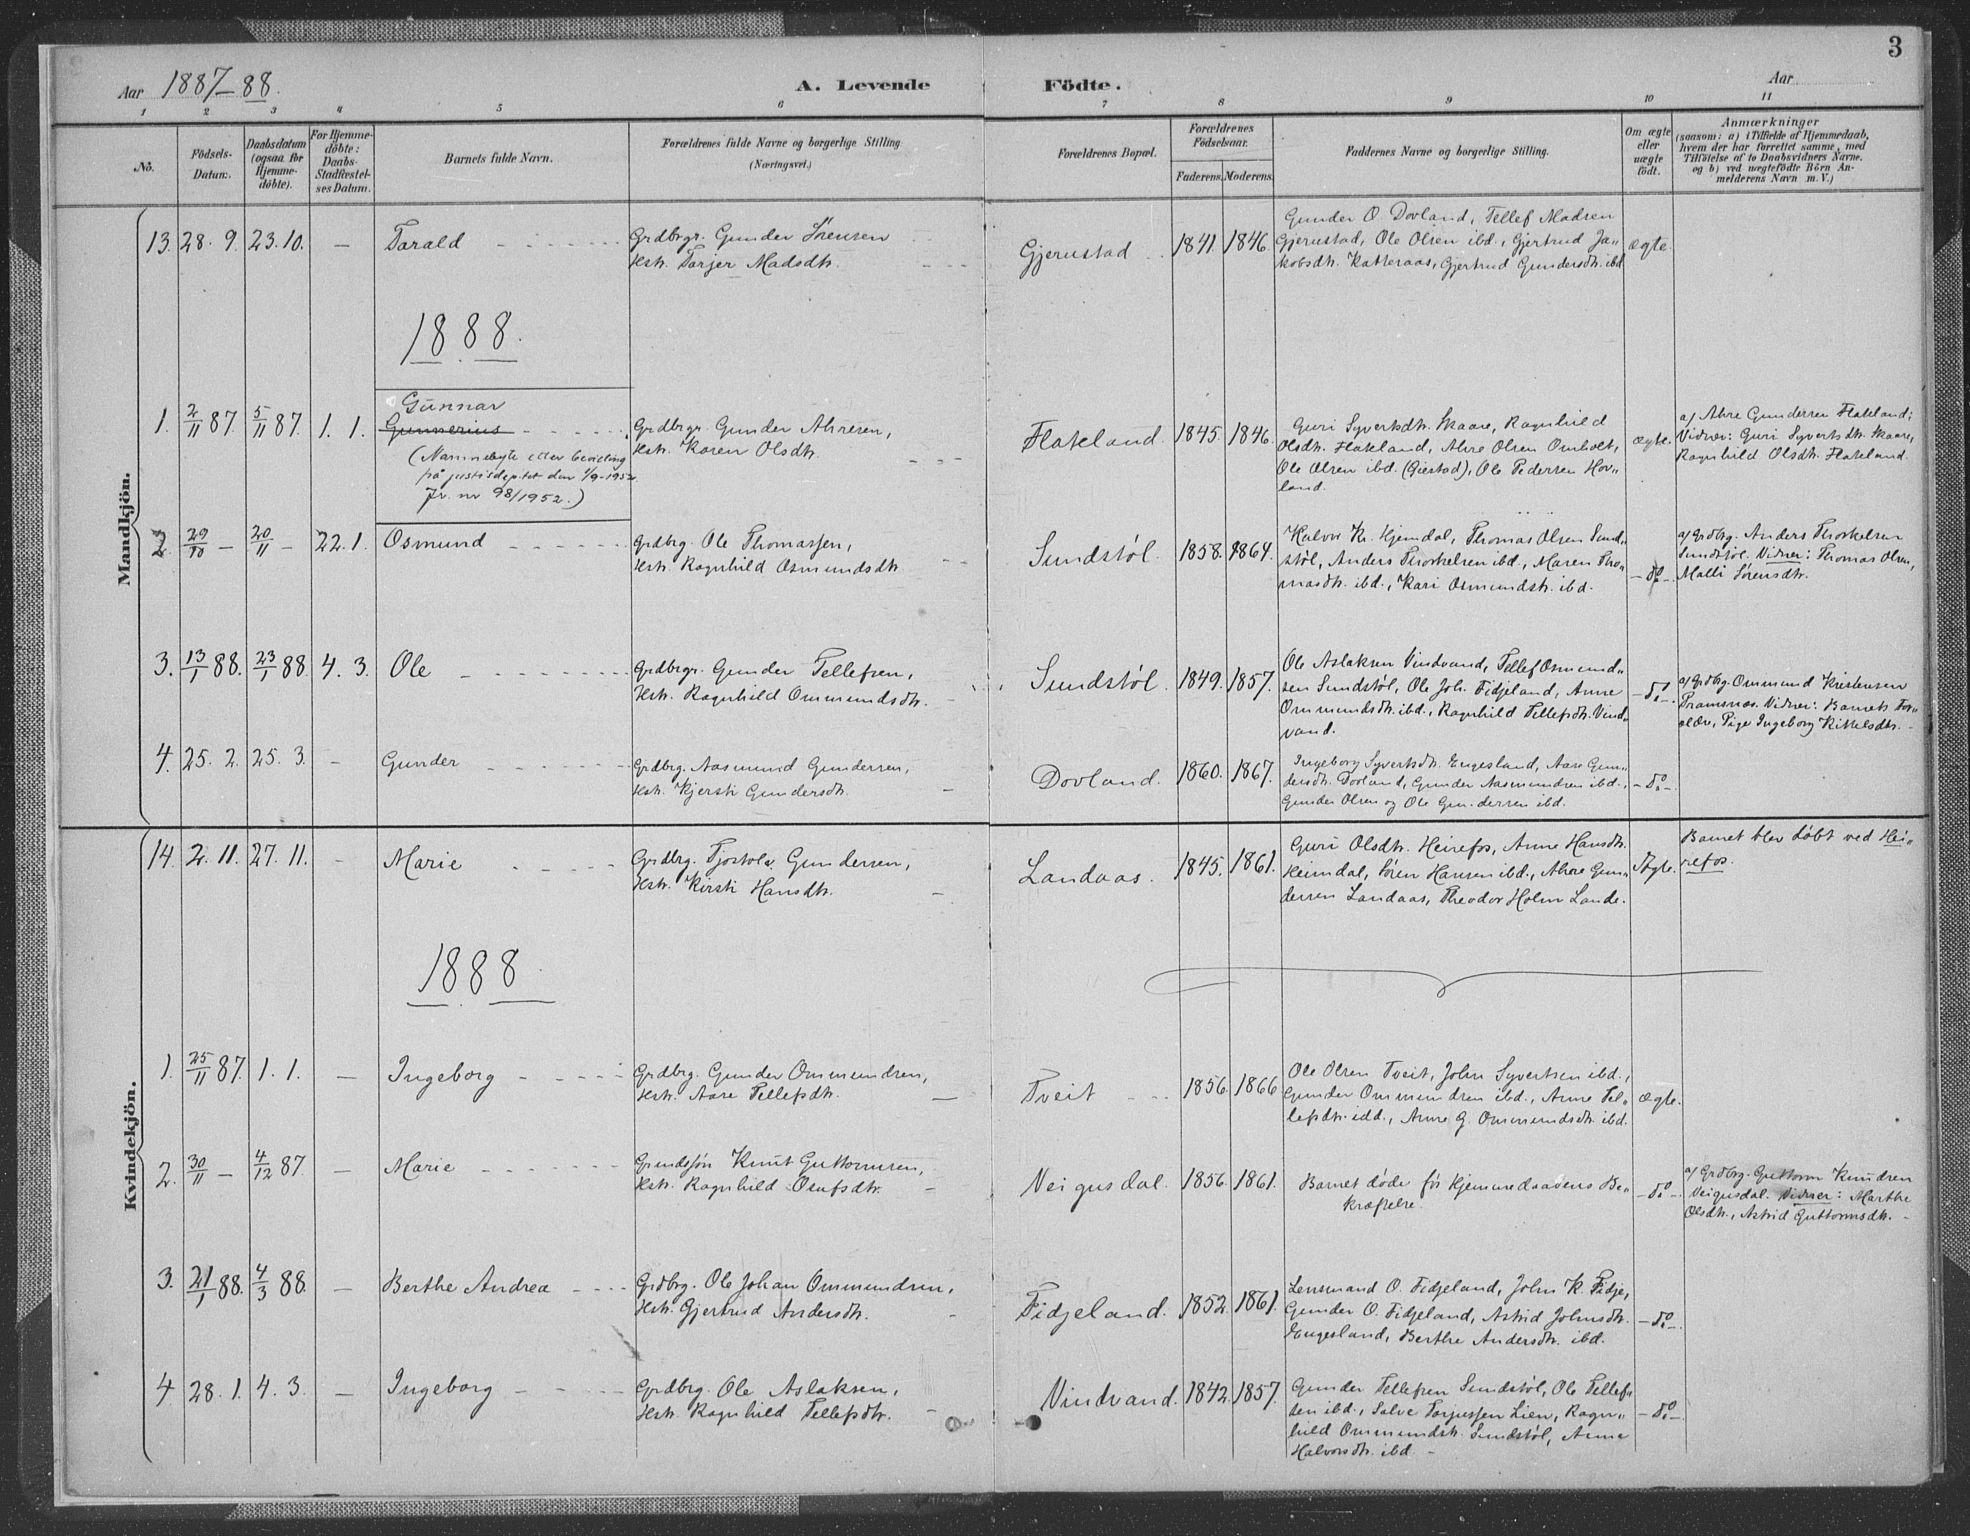 3
Aar 1887-88.
A. Levende
Födte.
Aar
1 2 3 4 5 6 7 8 9 10 11
No.
Födsels-
Datum:
Daabsdatum
(ogsaa for
Hjemme-
döbte).
For Hjemme-
döbte:
Daabs-
Stadfæstel-
ses Datum.
Barnets fulde Navn.
Forældrenes fulde Navne og borgerlige Stilling
(Næringsvei.)
Forældrenes Bopæl.
Forældrenes
Födselsaar.
Faderens. Moderens.
Faddernes Navne og borgerlige Stilling.
Om ægte
eller
uægte
födt.
Anmærkninger
(saasom: a) i Tilfælde af Hjemmedaab,
hvem der har forrettet samme, med
Tilföielse af to Daabsvidners Navne,
og b) ved uægtefödte Börn An-
melderens Navn m. V.)
Mandkjön.
13. 28. 9. 23. 10. — Tarald
Grdbrgr. Gunder Sørensen
Hstr. Tarjer Madsdtr.
Gjerustad 1841. 1846.
Gunder O. Dovland, Tellef Madsen
Gjerustad, Ole Olsen ibd., Gjertrud Ja-
kobsdtr. Katteraas, Gjertrud Gundersdtr. ibd
ægte.
1888.
1. 2/11 87. 5/11 87. 1. 1.
Gunnar
Gunnerius
(Namnebyte etter bevilling
på justisdeptet den 1/9-1952.
Jr. nr 98/1952.)
Grdbrgr. Gunder Ahresen,
Hstr. Karen Olsdtr.
Flateland. 1845. 1846.
Guri Syvertsdtr. Skaare, Ragnhild
Olsdtr. Flateland, Ahre Olsen Omholt,
Ole Olsen ibd. (Gjestad), Ole Pedersen Hov-
land.
ægte.
a) Ahre Gundersen Flateland;
Vidner: Guri Syvertsdtr. Skaare,
Ragnhild Olsdtr. Flateland.
2. 29/10 — 20/11 — 22. 1. Osmund
Grdbrg. Ole Thomassen,
Hstr. Ragnhild Osmundsdtr
Sundstøl. 1858. 1864.
Halvor Kr. Hjemdal, Thomas Olsen Sund-
støl, Anders Thorkelsen ibd., Maren Tho-
masdtr. ibd., Kari Osmundsdtr. ibd.
— do —
a) Grdbrg. Anders Thorkelsen
Sundstøl. Vidner: Thomas Olsen,
Malli Sørensdtr.
3. 13/1 88. 23/1 88. 4. 3. Ole
Grdbrgr. Gunder Tellefsen,
Hstr. Ragnhild Ommundsdtr.
Sundstøl. 1849. 1857.
Ole Aslaksen Vindvand, Tellef Osmund-
sen Sundstøl, Ole Joh. Fidjeland, Anne
Ommundsdtr. ibd., Ragnhild Tellefsdtr. Vind-
vand.
— do —
a) Grdbrg. Ommund Kristensen
Tramsnæs. Vidner: Barnets For-
ældre, Pige Ingeborg Kittelsdtr. -
4. 25. 2. 25. 3. — Gunder
Grdbrg. Aasmund Gundersen,
Hstr. Kjersti Gundersdtr.
Dovland. 1860. 1867.
Ingeborg Syvertsdtr. Engesland, Aase Gun-
dersdtr. Dovland, Gunder Aasmundsen ibd.,
Gunder Olsen og Ole Gundersen ibd.
— do —
Kvindekjön.
14. 2. 11. 27. 11. — Marie
Grdbrg. Tjostolv Gundersen,
Hstr. Kirsti Hansdtr.
Landaas. 1845. 1861.
Guri Olsdtr. Heirefos, Anne Hansdtr.
Heimdal, Søren Hansen ibd., Ahre Gun-
dersen Landaas, Theodor Holm Lande.
Ægte.
Barnet blev døbt ved Hei-
refos.
1888
1. 25/11 87. 1. 1. — Ingeborg
Grdbrg. Gunder Ommundsen,
Hstr. Aase Tellefsdtr.
Tveit 1856. 1866
Ole Olsen Tveit, John Syvertsen ibd.,
Gunder Ommundsen ibd., Anne Tel-
lefsdtr. idd., Anne G. Ommundsdtr. ibd.
ægte.
2. 30/11 — 4/12 87. — Marie
Grundssøn Knut Guttormsen,
Hstr. Ragnhild Osufsdtr.
Veigusdal. 1856. 1861.
Barnet døde før Hjemmedaavens Be-
kræftelse.
— do —
a) Grdbrg. Guttorm Knudsen
Veigusdal. Vidner: Marthe
Olsdtr., Astrid Guttormsdtr. -
3. 21/1 88. 4/3 88. — Berthe Andrea
Grdbrg. Ole Johan Ommundsen,
Hstr. Gjertrud Andersdtr.
Fidjeland. 1852. 1861.
Lensmand O. Fidjeland, John K. Fidje,
Gunder O. Fidjeland, Astrid Johnsdtr.
Engesland, Berthe Andersdtr. ibd.
— do —
4 28. 1. 4. 3. — Ingeborg
Grdbrg. Ole Aslaksen,
Hstr. Ragnhild Tellefsdtr.
Vindvand. 1842. 1857.
Gunder Tellefsen Sundstøl, Ole Tellef-
sen ibd., Salve Torjussen Lien, Ragn-
hild Ommundsdtr. Sundstøl, Anne
Halvorsdtr. ibd. -
— do —